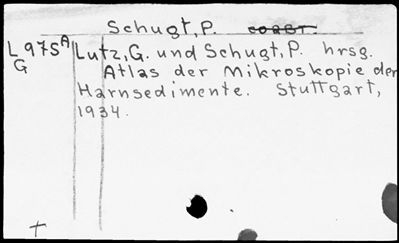 Schugt, P.
L975A Lutz, G. und Schugt, P. hrsg.
G Atlas der Mikroskopie der
Harnsedimente. Stuttgart,
1934.